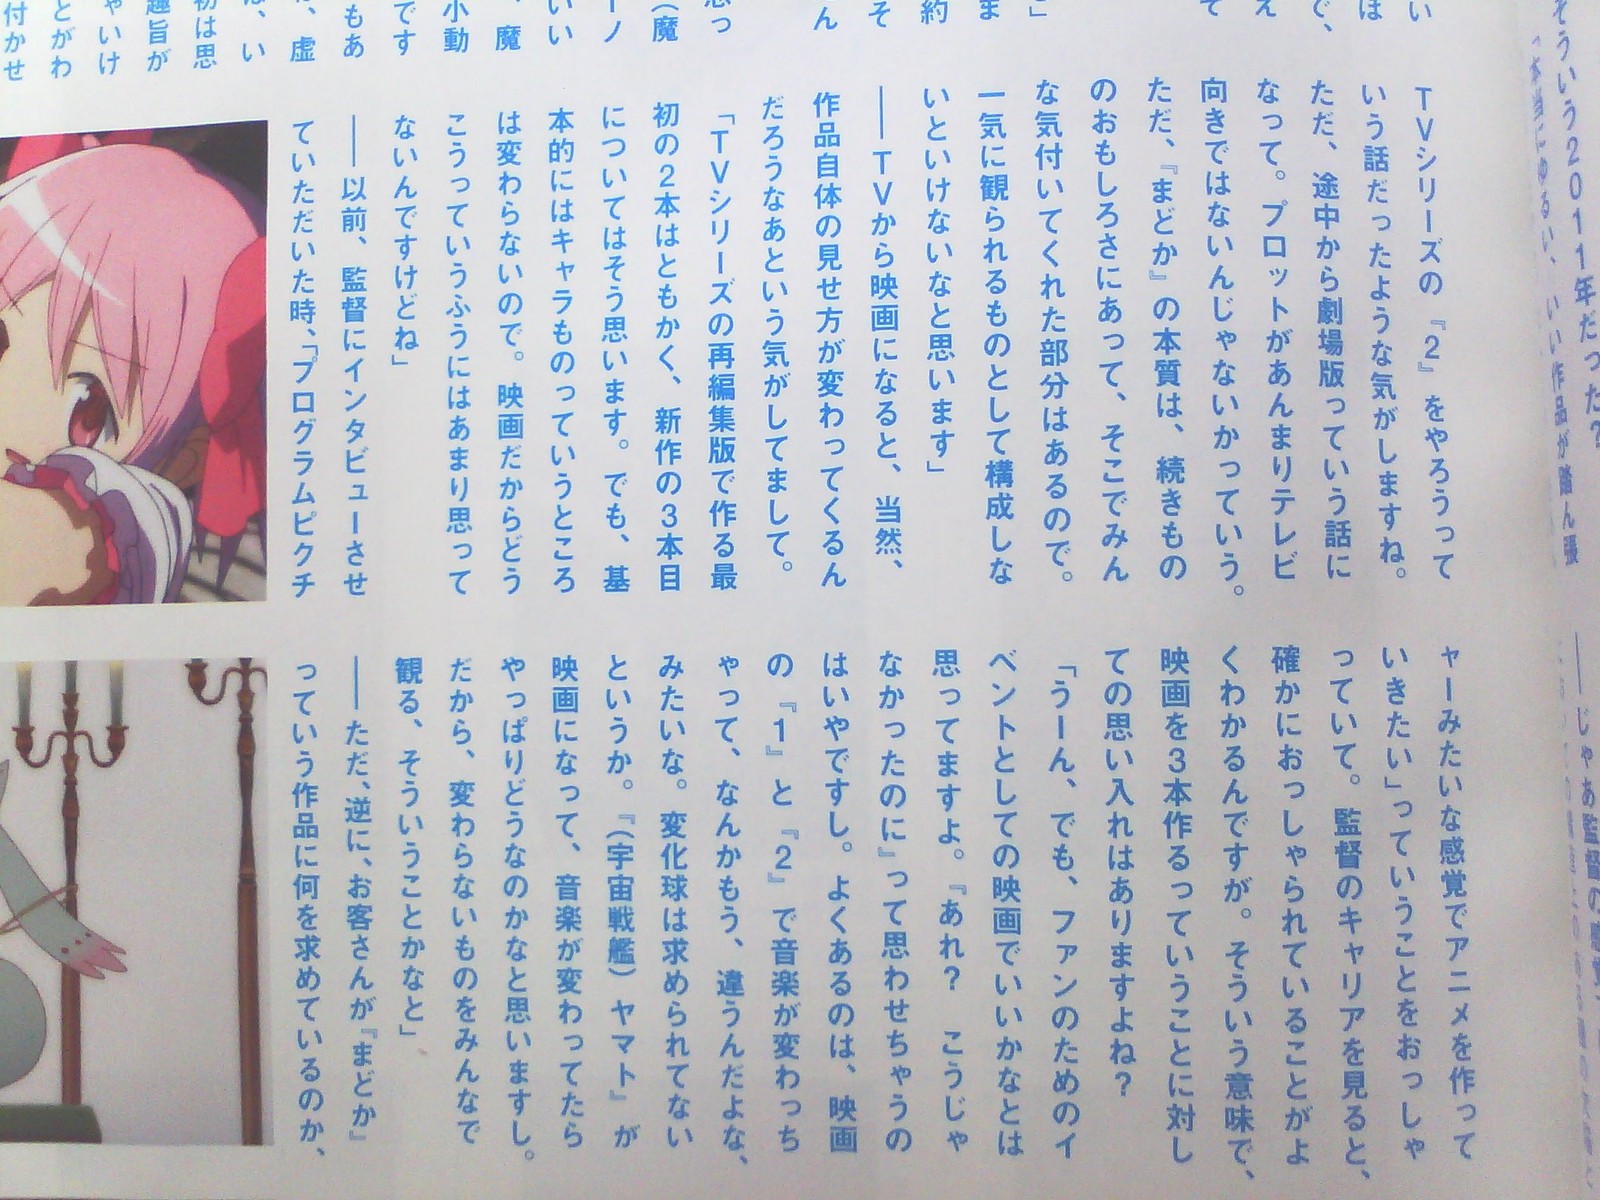 TVシリーズの『2』をやろうって
いう話だったような気がしますね。
ただ、途中から劇場版っていう話に
なって。プロットがあんまりテレビ
向きではないんじゃないかっていう。
ただ、『まどか』の本質は、続きもの
のおもしろさにあって、そこでみん
な気付いてくれた部分はあるので。
一気に観られるものとして構成しな
いといけないなと思います」
──TVから映画になると、当然、
作品自体の見せ方が変わってくるん
だろうなあという気がしてまして。
「TVシリーズの再編集版で作る最
初の2本はともかく、新作の3本目
についてはそう思います。でも、基
本的にはキャラものっていうところ
は変わらないので。映画だからどう
こうっていうふうにはあまり思って
ないんですけどね」
──以前、監督にインタビューさせ
ていただいた時、「プログラムピクチ
ャーみたいな感覚でアニメを作って
いきたい」っていうことをおっしゃ
っていて。監督のキャリアを見ると、
確かにおっしゃられていることがよ
くわかるんですが。そういう意味で、
映画を3本作るっていうことに対し
ての思い入れはありますよね？
「うーん、でも、ファンのためのイ
ベントとしての映画でいいかなとは
思ってますよ。『あれ？　こうじゃ
なかったのに』って思わせちゃうの
はいやですし。よくあるのは、映画
の『1』と『2』で音楽が変わっち
ゃって、なんかもう、違うんだよな、
みたいな。変化球は求められてない
というか。『(宇宙戦艦) ヤマト』が
映画になって、音楽が変わってたら
やっぱりどうなのかなと思いますし。
だから、変わらないものをみんなで
観る、そういうことかなと」
──ただ、逆に、お客さんが『まどか』
っていう作品に何を求めているのか、